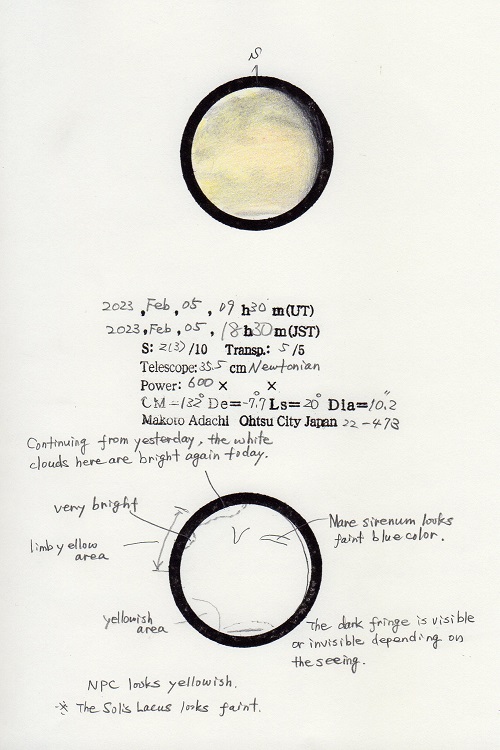 S
2023, Feb, 05, 09 h30 m(UT)
2023, Feb, 05, 18 h30 m(JST)
S: 2(3)/10 Transp.: 5/5
Telescope: 35.5 cm Newtonian
Power: 600 × ×
CM=132° De=-7.7° Ls=20° Dia=10.2"
Makoto Adachi Ohtsu City Japan 22-473
Continuing from yesterday, the white
clouds here are bright again today.
very bright
limb yellow
area
Mare sirenum looks
faint blue color.
yellowish
area
The dark fringe is visible
or invisible depending on
the seeing.
NPC looks yellowish.
※ The Solis Lacus looks faint.